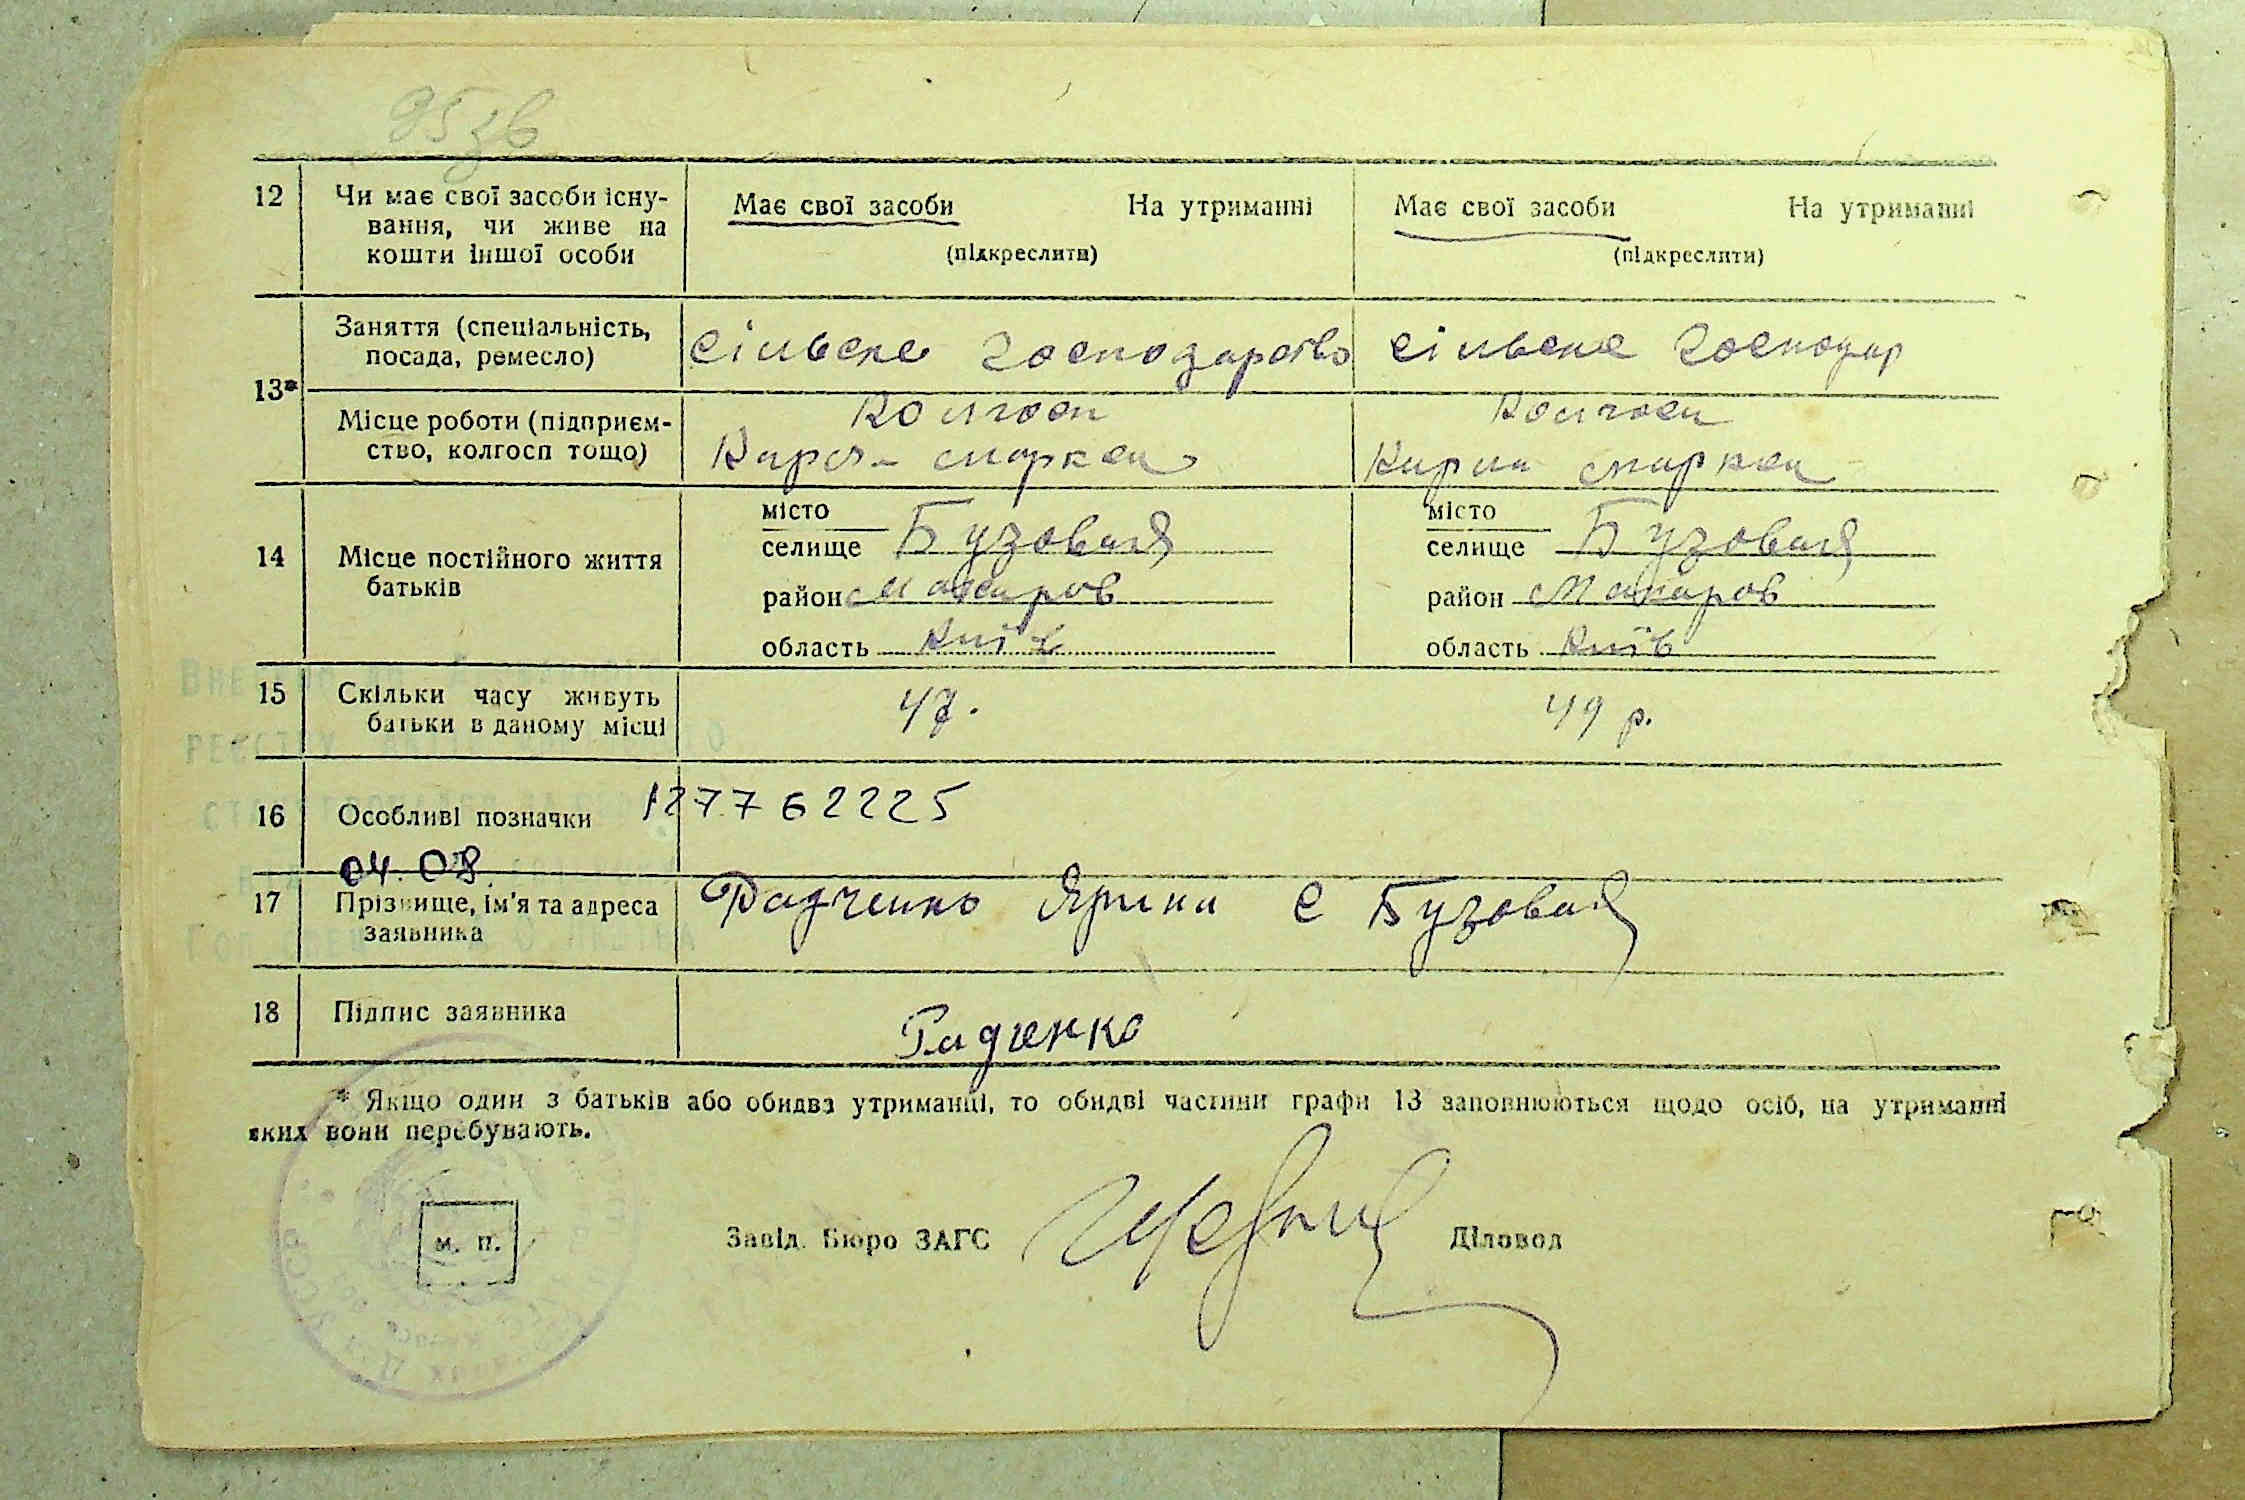 95 зв
12 Чи має свої засоби існу- Має свої засоби На утриманні Має свої засоби На утриманні
вання, чи живе на
кошти іншої особи (підкреслити) (підкреслити)
13* Заняття (спеціальність, сільске господарство сільске господар
посада, ремесло)
Місце роботи (підприєм- Колгосп Колгосп
ство, колгосп тощо) Карла маркса Карла маркса
14 Місце постійного життя батьків
місто місто
селище Бузовая селище Бузовая
район Макаров район Макаров
область Київ область Київ
15 Скільки часу живуть 47. 49 р.
батьки в даному місці
16 Особливі позначки 127762225
04.08
17 Прізвище, ім'я та адреса Радченко Ярина с Бузовая
заявника
18 Підпис заявника Радченко
* Якщо один з батьків або обидва утриманці, то обидві частини графи 13 заповнюються щодо осіб, на утриманні
яких вони перебувають.
м. п. Завід. Бюро ЗАГС Діловод